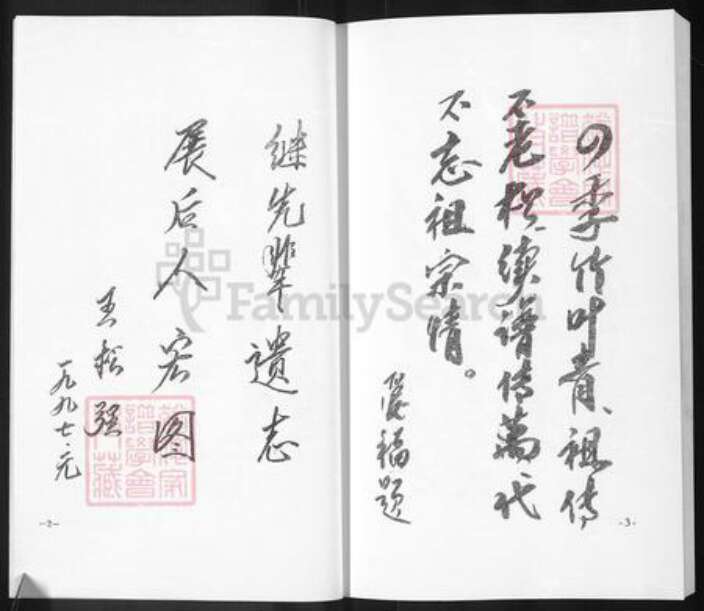 四季竹叶青、祖传
不老松、续谱传萬代
不忘祖宗情。
福题
-3-
继先辈遗志
展后人宏图
王松强
一九九七.元
-2-
FamilySearch